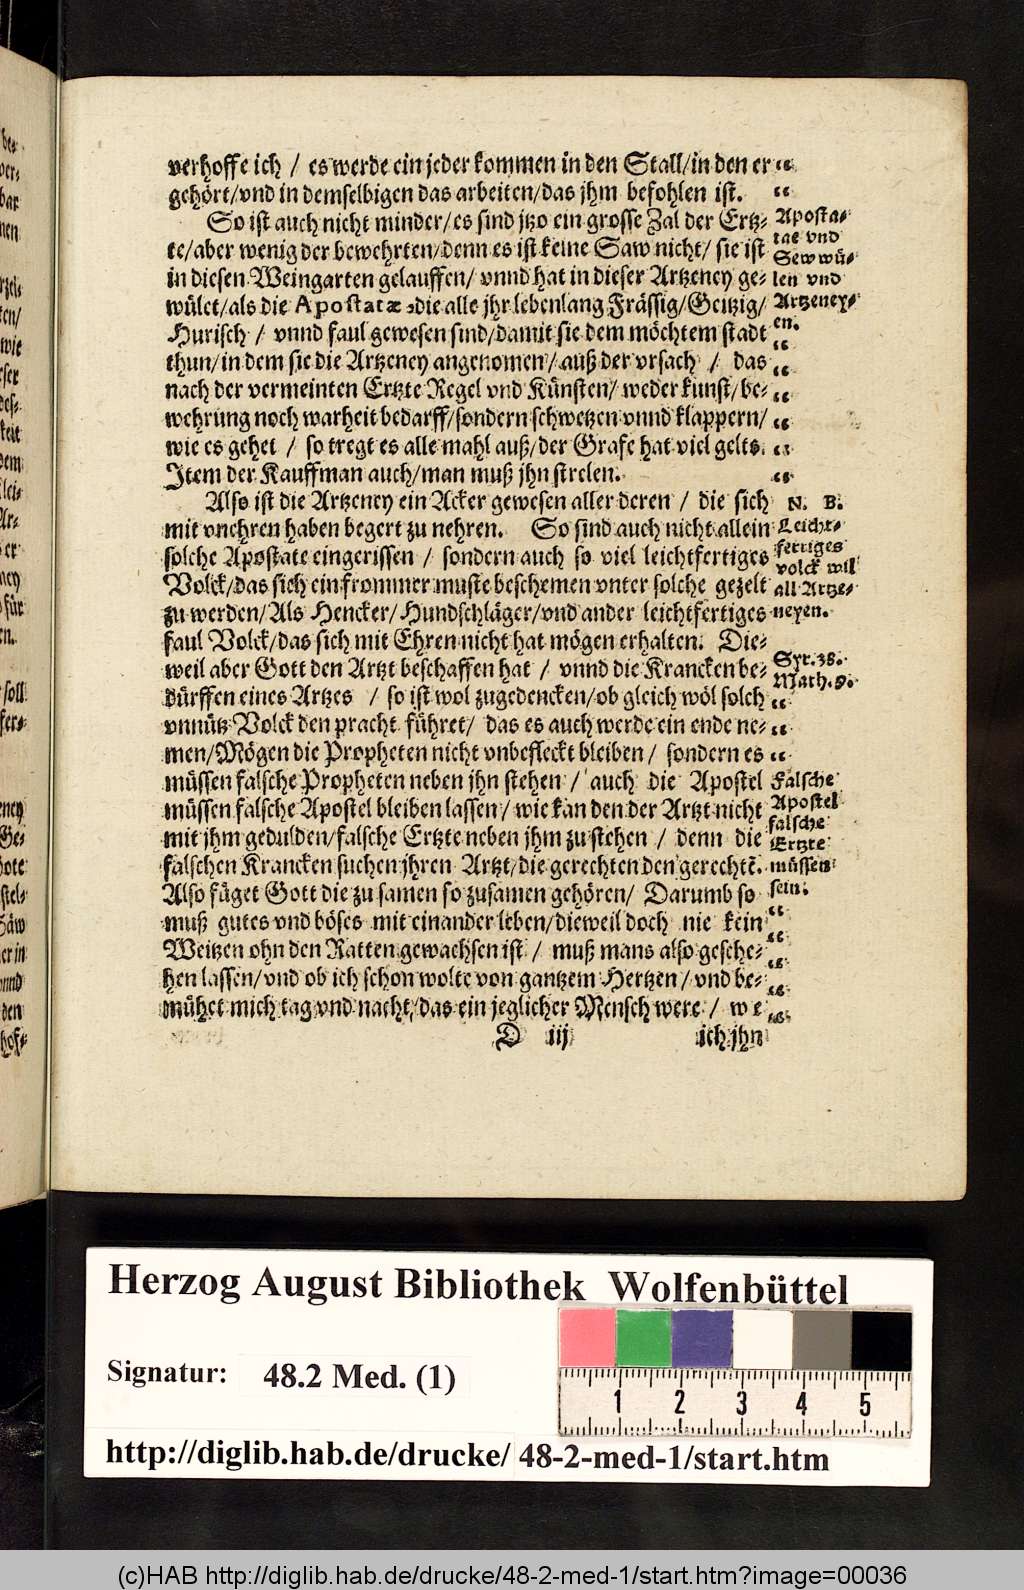 verhoffe ich / es werde ein jeder kommen in den Stall/in den er
gehört/vnd in demselbigen das arbeiten/das jhm befohlen ist.
So ist auch nicht minder/es sind jtzo ein grosse Zal der Ertz-
te/aber wenig der bewehrten/denn es ist keine Saw nicht/ sie ist
in diesen Weingarten gelauffen/ vnnd hat in dieser Artzeney ge-
wület/als die Apostatæ :die alle jhr lebenlang Frässig/Geitzig/
Hurisch / vnnd faul gewesen sind/damit sie dem möchtem stadt
thun/in dem sie die Artzeney angenomen/auß der vrsach / das
nach der vermeinten Ertzte Regel vnd Künsten/ weder kunst/be-
wehrung noch warheit bedarff/sondern schwetzen vnnd klappern/
wie es gehet / so tregt es alle mahl auß/der Grafe hat viel gelts.
Item der Kauffman auch/man muß jhn strelen.
Also ist die Artzeney ein Acker gewesen aller deren / die sich
mit vnehren haben begert zu nehren. So sind auch nicht allein
solche Apostate eingerissen / sondern auch so viel leichtfertiges
Volck/das sich ein frommer muste beschemen vnter solche gezelt
zu werden/Als Hencker/Hundschläger/vnd ander leichtfertiges
faul Volck/das sich mit Ehren nicht hat mögen erhalten. Die-
weil aber Gott den Artzt beschaffen hat / vnnd die Krancken be-
dürffen eines Artzes / so ist wol zugedencken/ob gleich wöl solch
vnnütz Volck den pracht führet/ das es auch werde ein ende ne-
men/Mögen die Propheten nicht vnbefleckt bleiben/ sondern es
müssen falsche Propheten neben jhn stehen / auch die Apostel
müssen falsche Apostel bleiben lassen/ wie kan den der Artzt nicht
mit jhm gedulden/falsche Ertzte neben jhm zu stehen / denn die
falschen Krancken suchen jhren Artzt/die gerechten den gerechtē.
Also füget Gott die zu samen so zusamen gehören/ Darumb so
muß gutes vnd böses mit einander leben/dieweil doch nie kein
Weitzen ohn den Ratten gewachsen ist / muß mans also gesche-
hen lassen/vnd ob ich schon wolte von gantzem Hertzen/vnd be-
mühet mich tag vnd nacht/das ein jeglicher Mensch were / we
D iij ich jhn
Aposta-
tae vnd
Sew wü-
len vnd
Artzeney-
en.
N. B.
Leicht-
fertiges
volck wil
all Artze-
neyen.
Syr. 38.
Math. 9.
Falsche
Apostel
falsche
Ertzte
müssen
sein.
Herzog August Bibliothek Wolfenbüttel
Signatur: 48.2 Med. (1)
1 2 3 4 5
http://diglib.hab.de/drucke/ 48-2-med-1/start.htm
(c)HAB http://diglib.hab.de/drucke/48-2-med-1/start.htm?image=00036